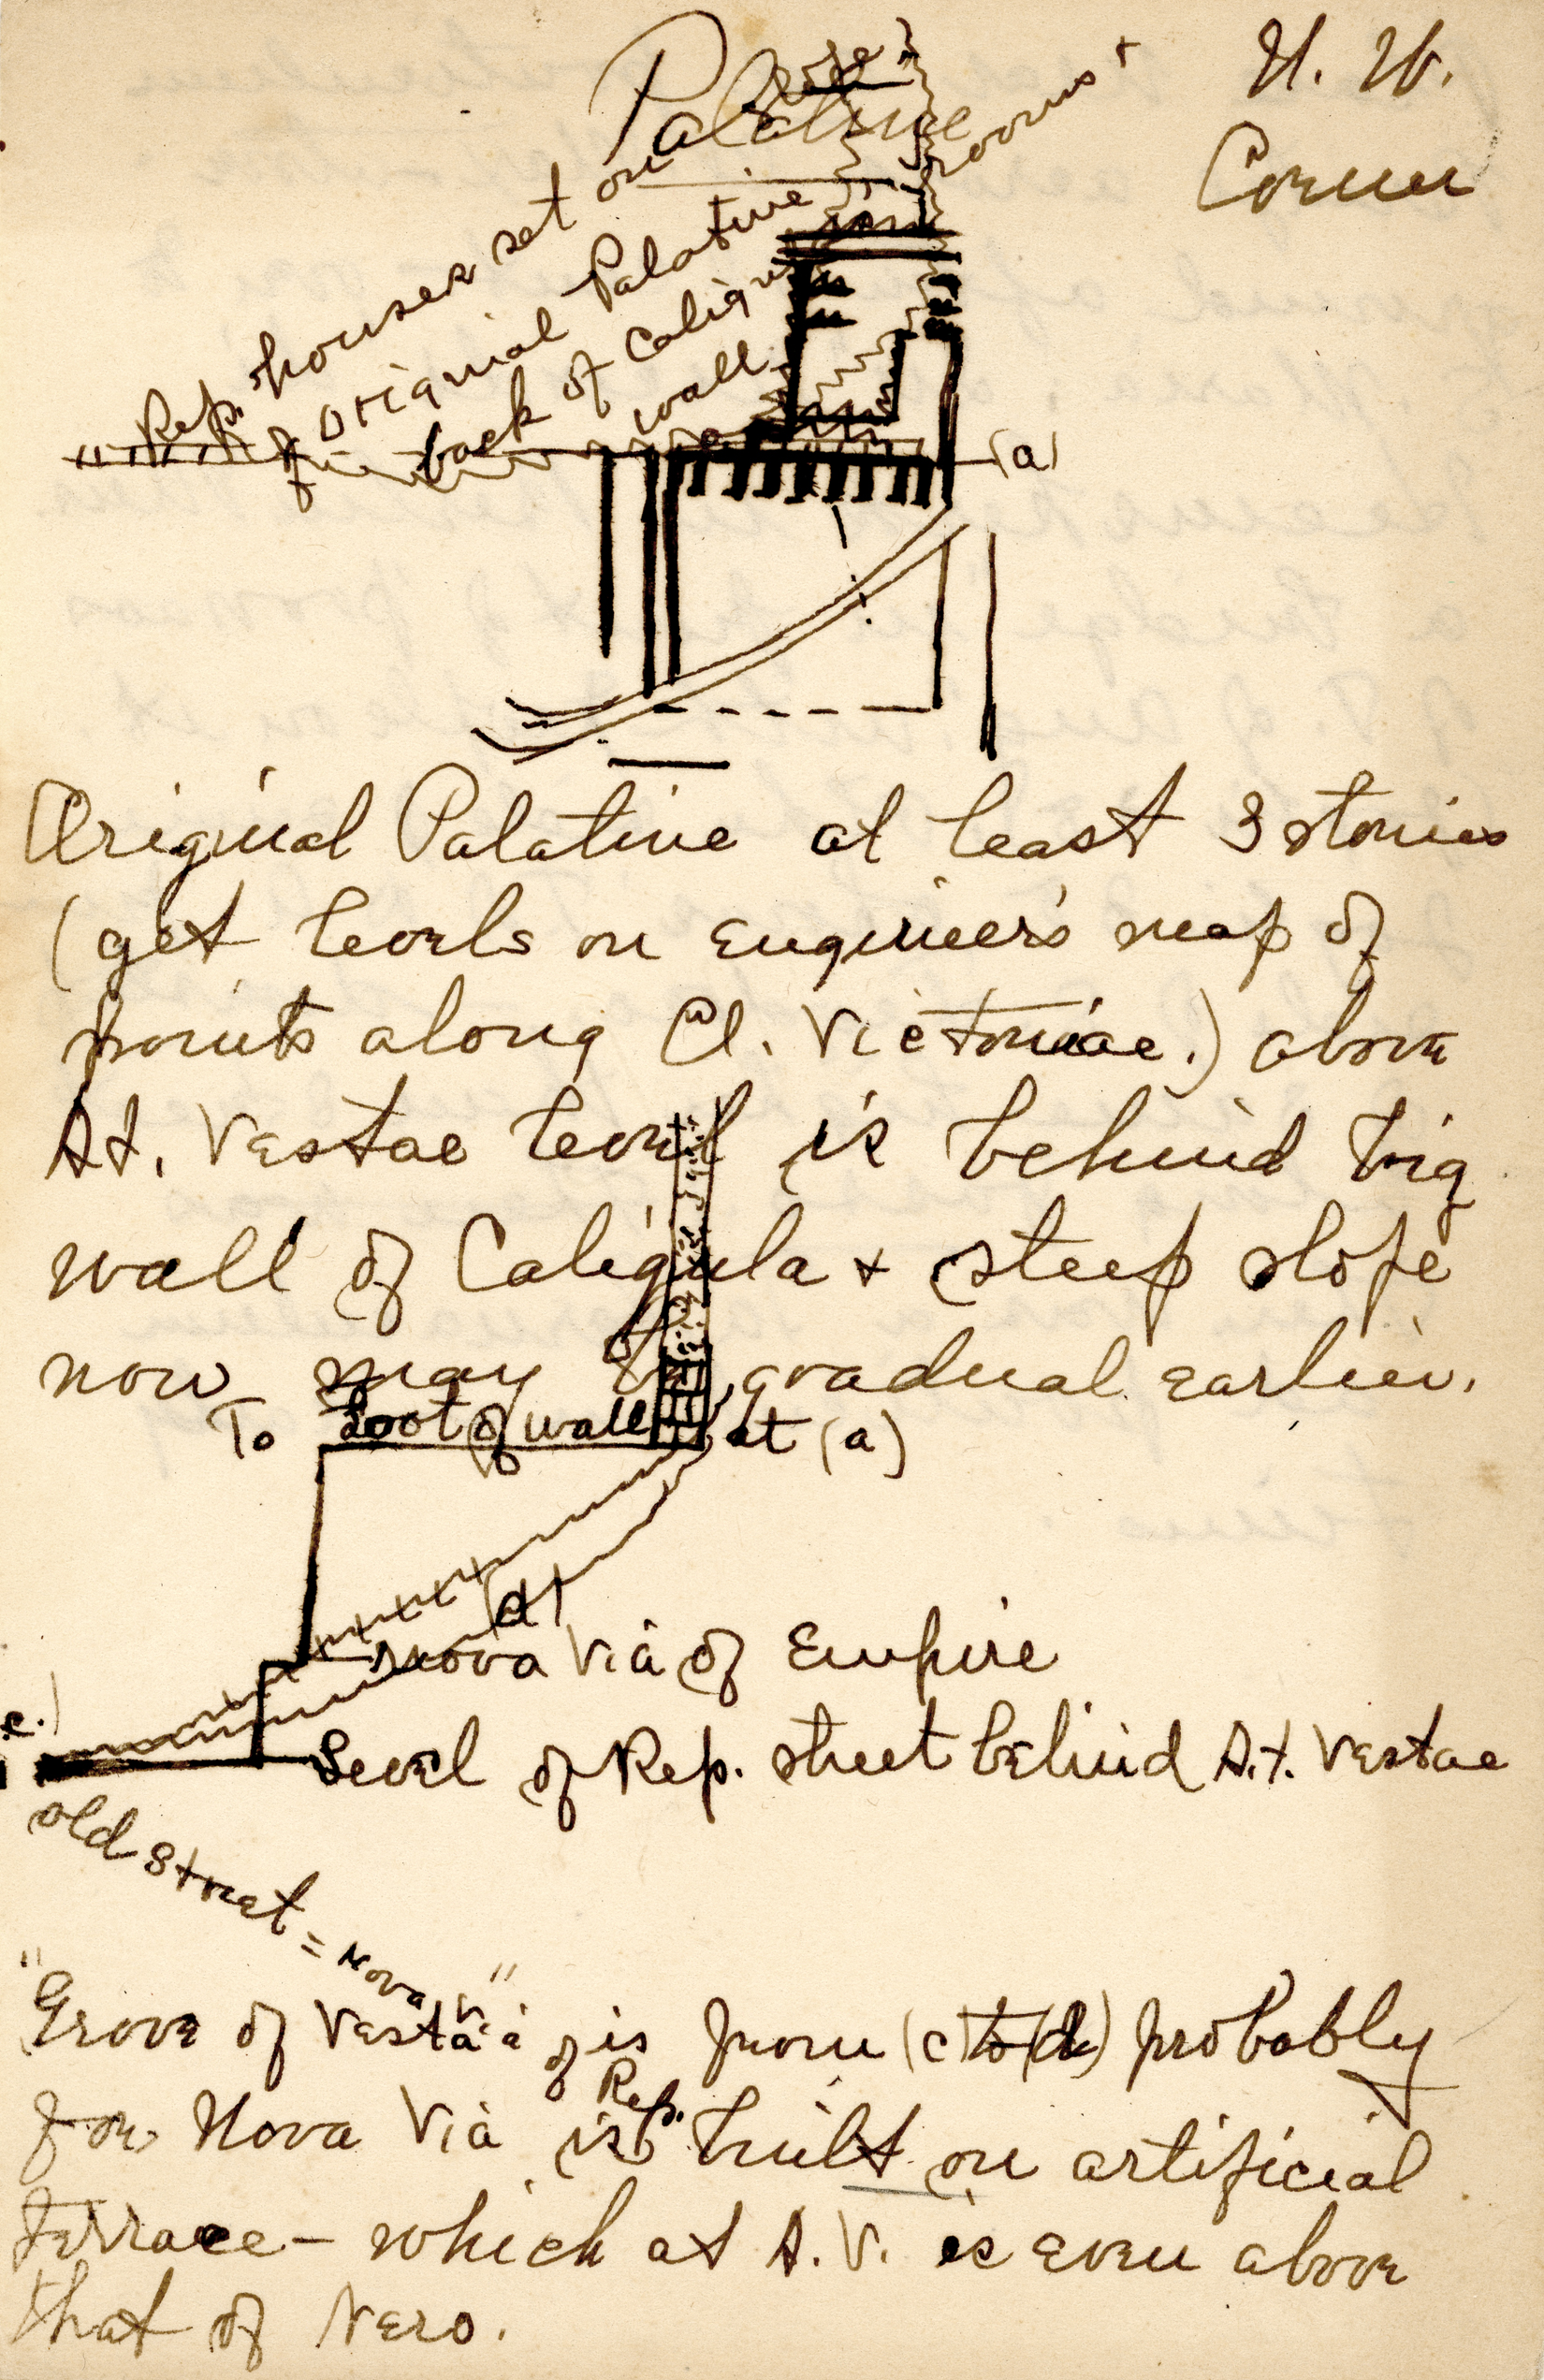 Palatine
N. W.
Corner
Rep. houses set on
of original Palatine rooms +
back of Caligula
wall
(a)
Original Palatine at least 3 stories
(get levels on Engineer's map of
points along Cl. Victoriae.) above
At. Vestae level is behind big
wall of Caligula + steep slope
now may be gradual earlier.
To foot of wall at (a)
(d)
Nova Via of Empire
c.)
Level of Rep. street behind A.t. Vestae
old street = Nova Via
"Grove of Vesta" is from (c) to (d) probably
for Nova Via of Rep. is built on artificial
terrace - which at A.V. is even above
that of Nero.